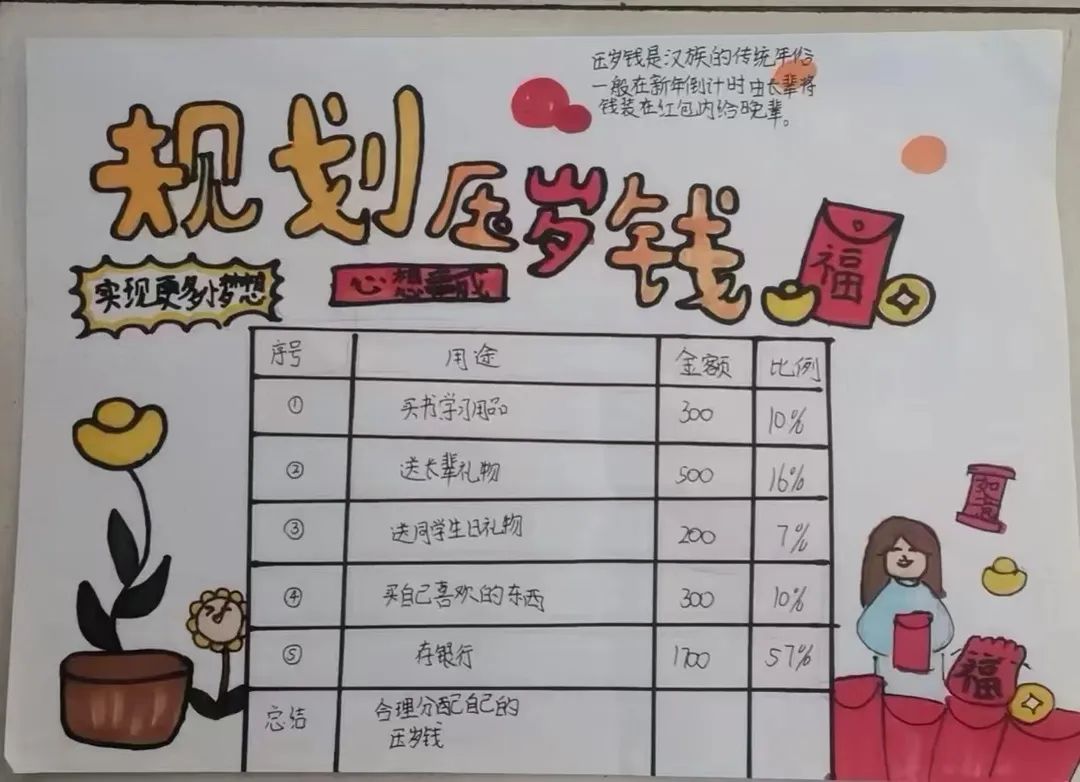 压岁钱是汉族的传统年俗
一般在新年倒计时由长辈将
钱装在红包内给晚辈。
规划压岁钱
福
实现更多小梦想
心想事成
序号 用途 金额 比例
① 买书学习用品 300 10%
② 送长辈礼物 500 16%
③ 送同学生日礼物 200 7%
④ 买自己喜欢的东西 300 10%
⑤ 存银行 1700 57%
总结 合理分配自己的
压岁钱
如意
福